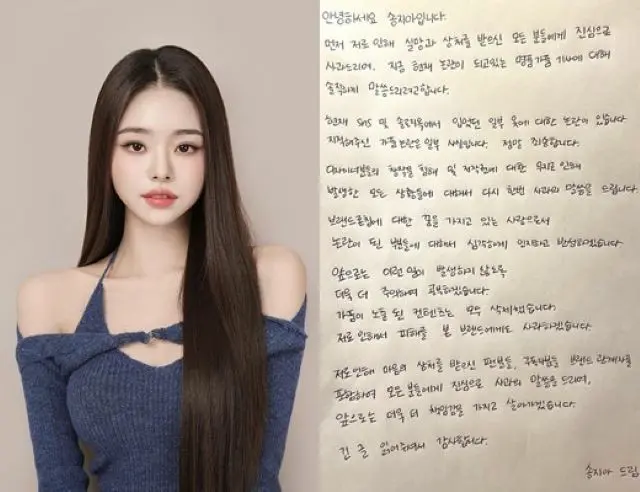 안녕하세요 송지아입니다.
먼저 저로 인해 실망과 상처를 받으신 모든 분들에게 진심으로
사과드리며, 지금 현재 논란이 되고있는 명품가품 기사에 대해
솔직하게 말씀드리려고합니다.
현재 SNS 및 솔로지옥에서 입었던 일부 옷에 대한 논란이 있습니다
지적해주신 가품논란은 일부 사실입니다. 정말 죄송합니다.
디자이너분들의 창작물 침해 및 저작권에 대한 무지로 인해
발생한 모든 상황들에 대해서 다시 한번 사과의 말씀을 드립니다.
브랜드론칭에 대한 꿈을 가지고 있는 사람으로서
논란이 된 부분들에 대해서 심각하게 인지하고 반성하겠습니다
앞으로는 이런 일이 발생하지 않도록
더욱 더 주의하며 공부하겠습니다.
가품이 노출 된 컨텐츠는 모두 삭제했습니다.
저로 인해서 피해를 본 브랜드에게도 사과하겠습니다.
저로인해 마음의 상처를 받으신 팬분들, 구독자분들 브랜드 관계자를
포함하여 모든분들에게 진심으로 사과의 말씀을 드리며,
앞으로는 더욱 더 책임감을 가지고 살아가겠습니다.
긴 글 읽어주셔서 감사합니다.
송지아 드림